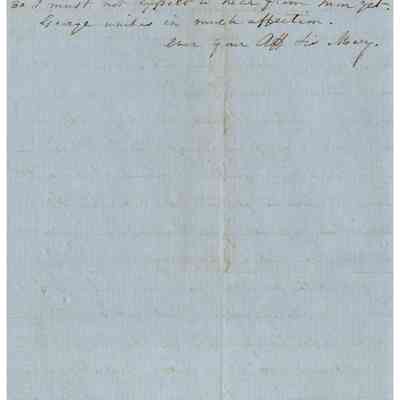 so I must not expect to hear from him yet.
George unites in much affection.
Ever your Aff Sis Mary.